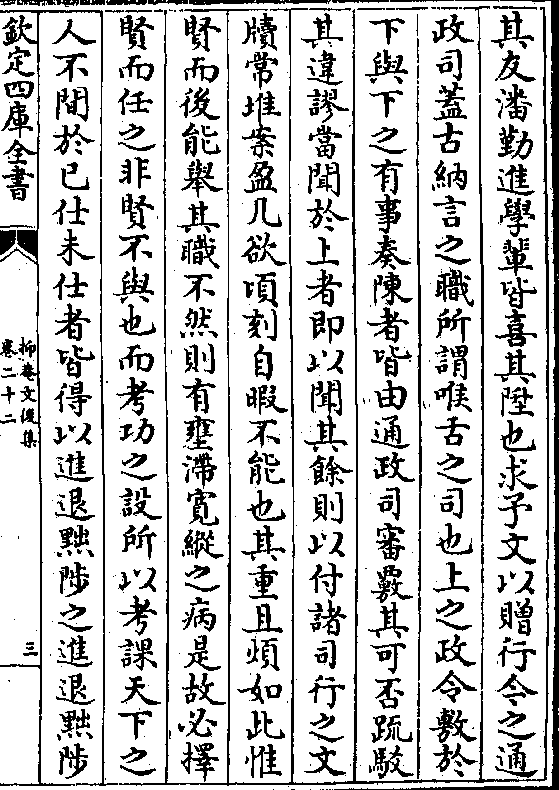 其友潘勤進學輩皆喜其陞也求予文以贈行今之通
政司蓋古納言之職所謂喉舌之司也上之政令敷於
下與下之有事奏陳者皆由通政司審覈其可否䟽駁
其違謬當聞於上者即以聞其餘則以付諸司行之文
牘常堆案盈几欲頃刻自暇不能也其重且煩如此惟
賢而後能舉其職不然則有壅滯寛縱之病是故必擇
賢而任之非賢不與也而考功之設所以考課天下之
人不間於已仕未仕者皆得以進退黜陟之進退黜陟
欽定四庫全書
抑菴文後集
卷二十二
三